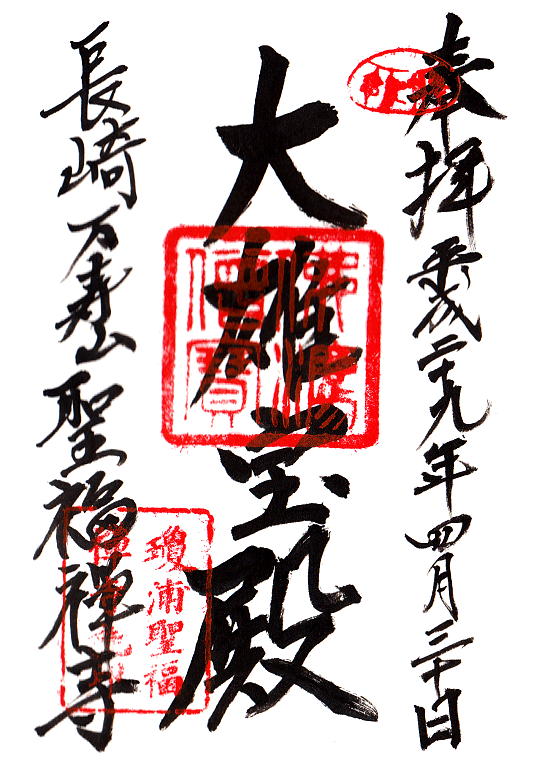 奉拝 平成二十九年四月三十日
大雄宝殿
佛法僧寳
長崎 万寿山 聖福禅寺
瓊浦聖福